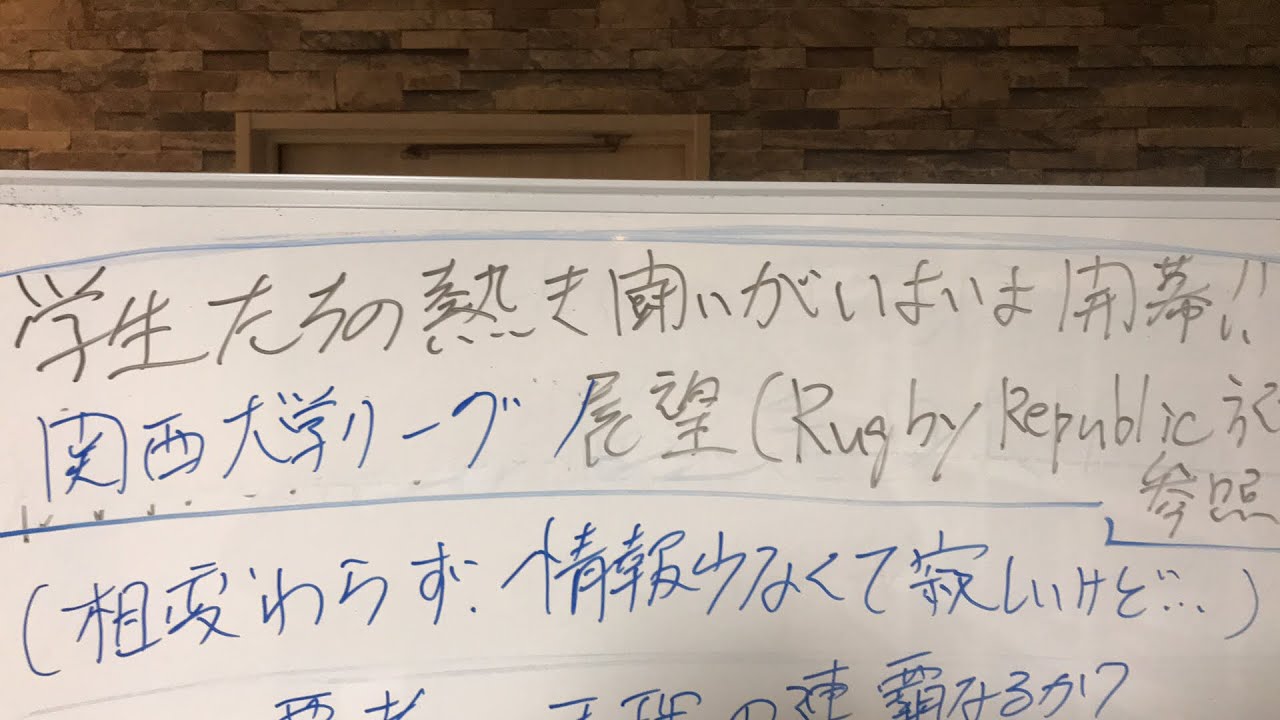 学生たちの熱き闘いがいよいよ開幕!!
関西大学リーグ展望(Rugby Republic記
参照
(相変わらず、情報少なくて寂しいけど…)
の連覇なるか?